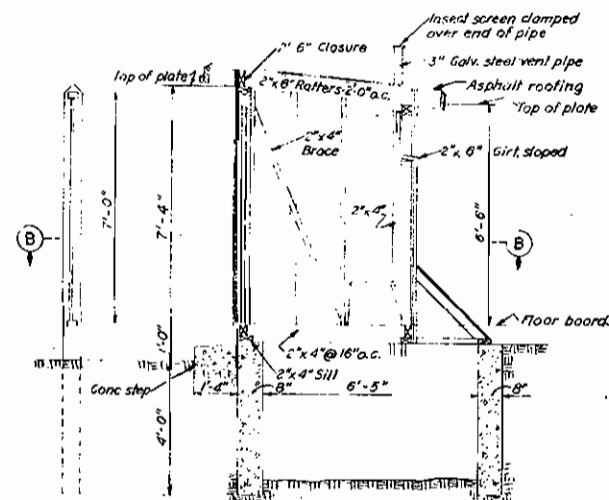 Insect screen clamped
over end of pipe
2" 6" Closure
3" Galv. steel vent pipe
Top of plate
2"x6" Rafters-2'-0"o.c.
Asphalt roofing
Top of plate
2"x4"
Brace
2"x 6" Girt, sloped
7'-0"
7'-4"
2"x4"
6'-6"
B
B
Floor board
1'-0"
2"x4"@16"o.c.
2"x4" Sill
Conc step
1'-4"
8"
6'-5"
8"
4'-0"